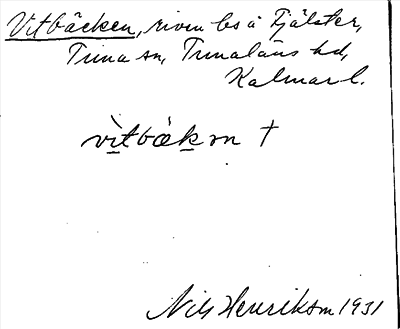 Vitbäcken, riven bs å Fjälster,
Tuna sn, Tunaläns hd,
Kalmar l.
vìtbäkən †
Nils Henrikson 1931